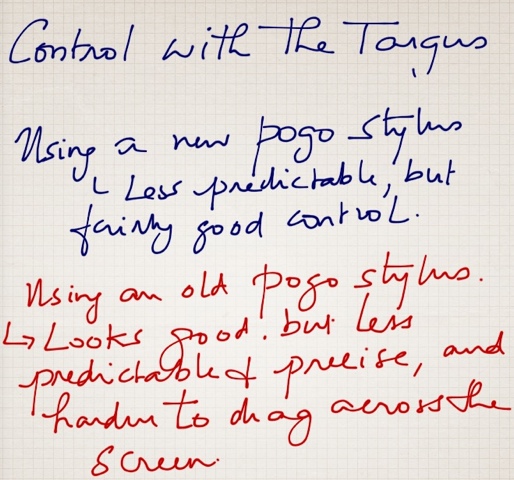 Control with the Targus
Using a new pogo stylus
↳ Less predictable, but
fairly good control.
Using an old pogo stylus.
↳ Looks good. but less
predictable & precise, and
harder to drag across the
screen.